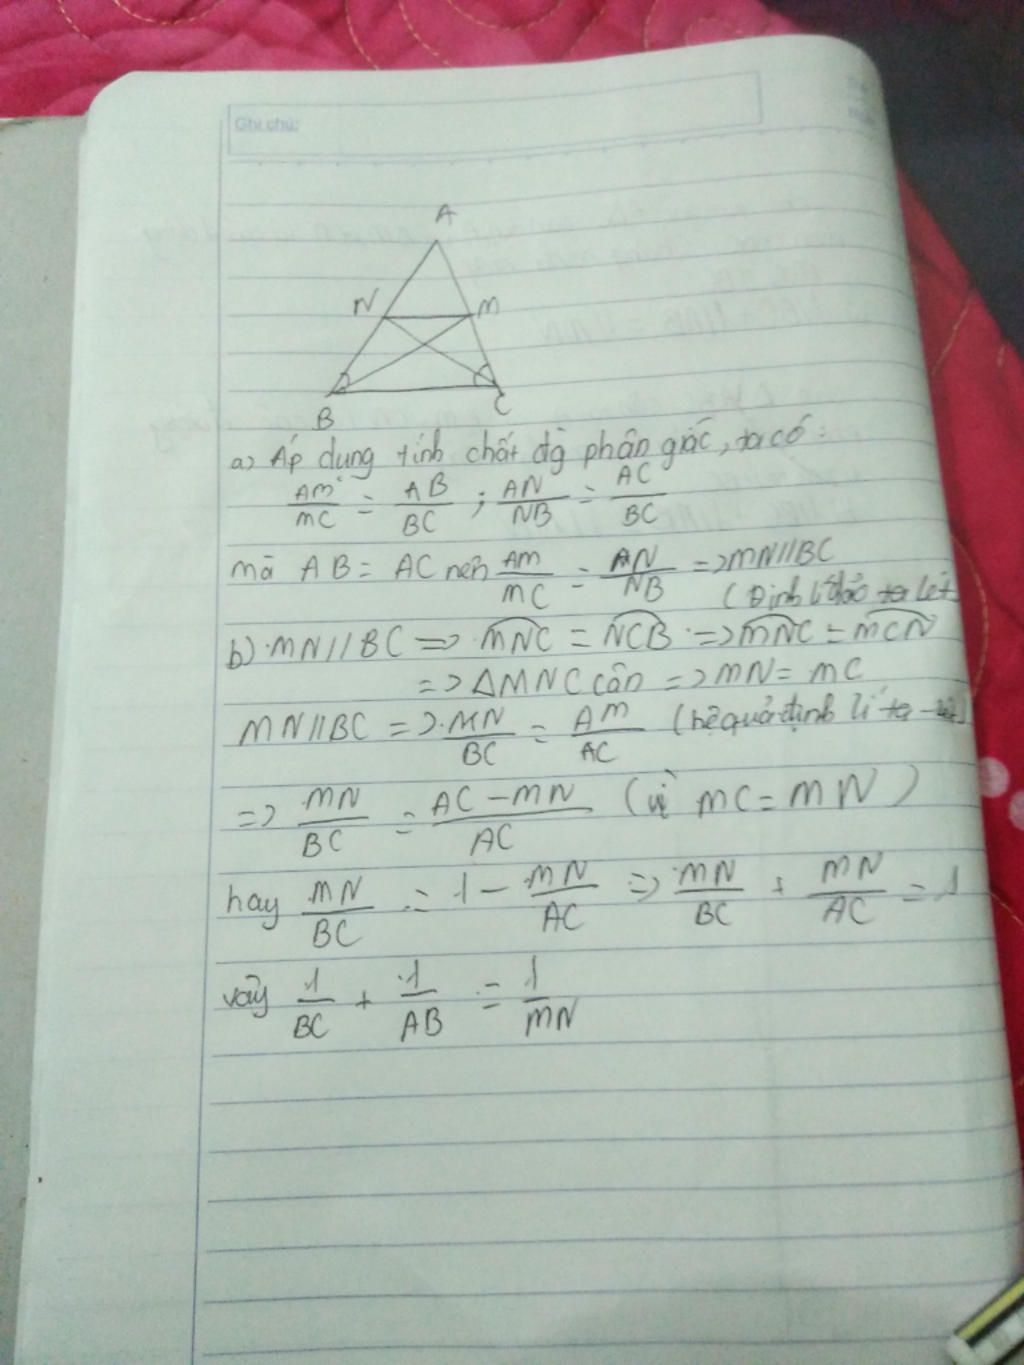 Ghi chú:
A
N M
B C
a) Áp dụng tính chất đg phân giác, ta có:
AM/MC = AB/BC ; AN/NB = AC/BC
mà AB = AC nên AM/MC = AN/NB => MN//BC
(Định lí đảo ta lét)
b) MN//BC => MNC = NCB => MNC = MCN
=> ΔMNC cân => MN = MC
MN//BC => MN/BC = AM/AC (hệ quả định lí ta-lét)
=> MN/BC = AC - MN/AC (vì MC = MN)
hay MN/BC = 1 - MN/AC => MN/BC + MN/AC = 1
vậy 1/BC + 1/AB = 1/MN